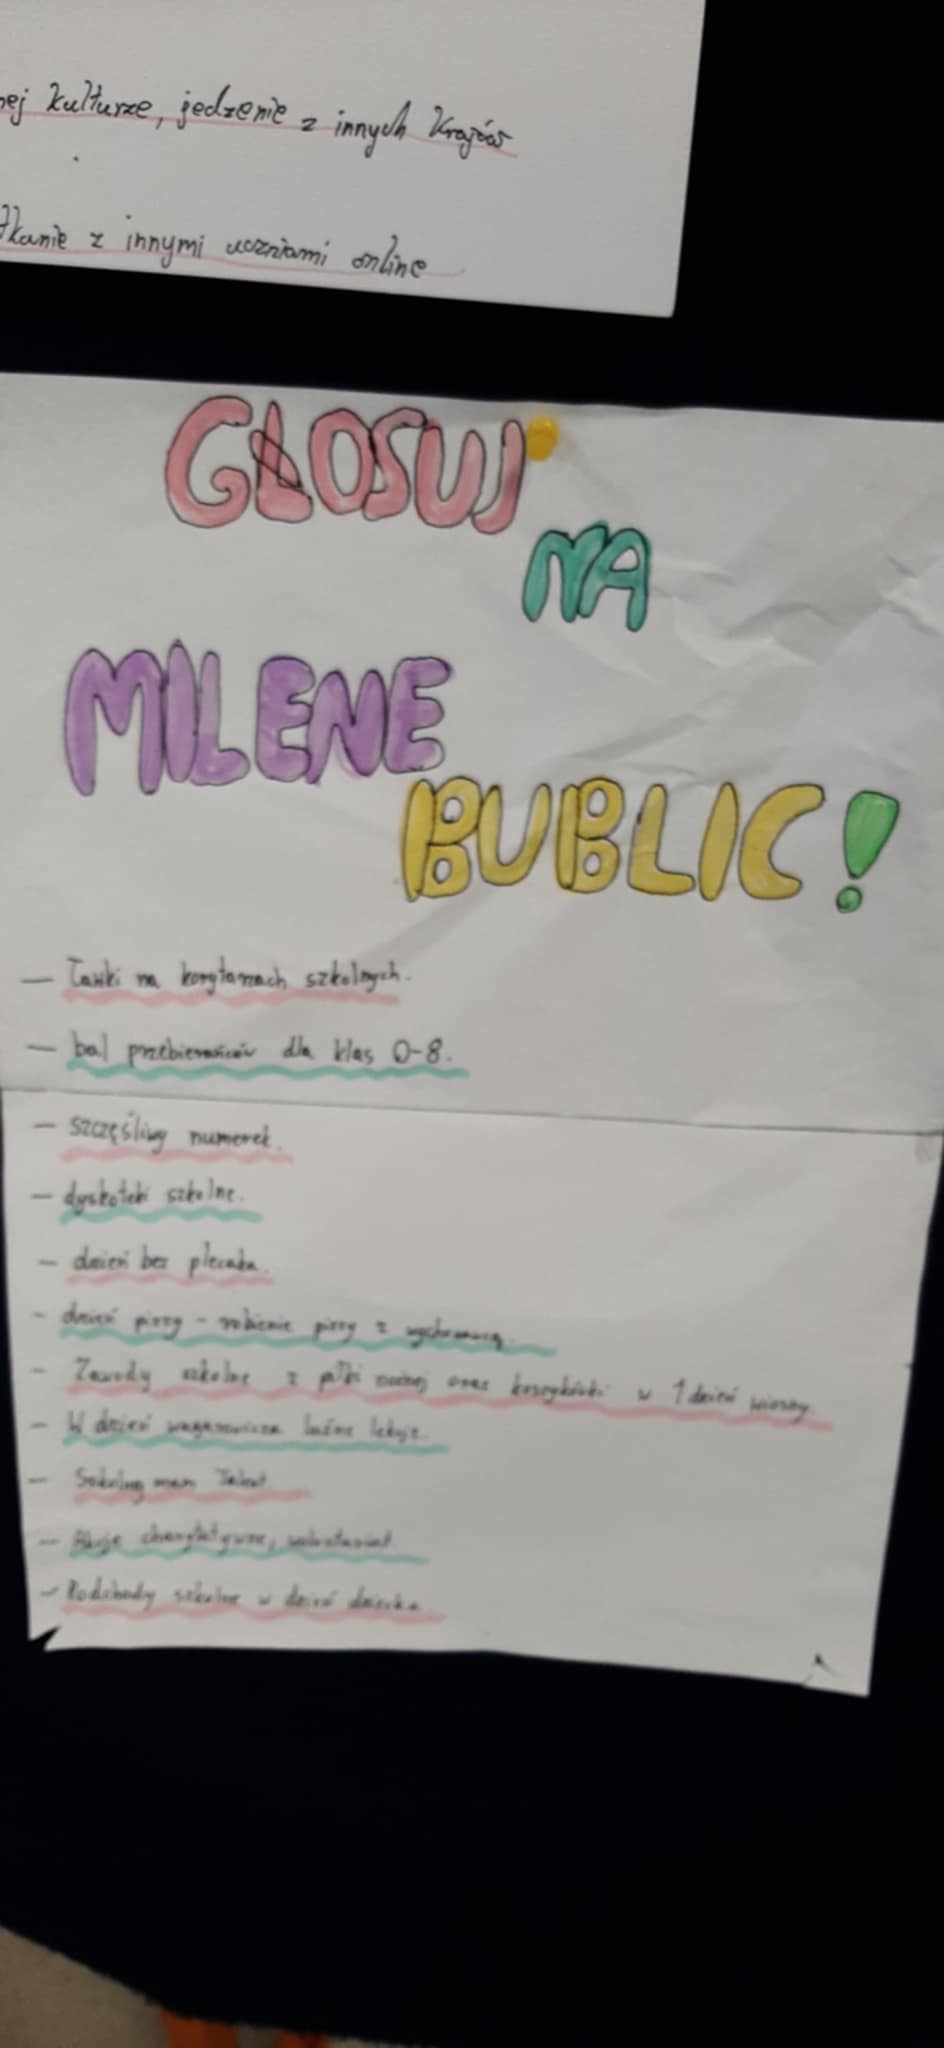 nej kulturze, jedzenie z innych krajów
tkanie z innymi uczniami online
GŁOSUJ
NA
MILENE
BUBLIC!
— Ławki na korytarzach szkolnych.
— bal przebierańców dla klas 0-8.
— szczęśliwy numerek.
— dyskoteki szkolne.
— dzień bez plecaka.
- dzień pizzy - robienie pizzy z wychowawcą.
- Zawody szkolne z piłki nożnej oraz koszykówki w 1 dzień wiosny.
- W dzień wagarowicza luźne lekcje.
- mam Talent.
- Akcje charytatywne, wolontariat.
- Podchody szkolne w dzień dziecka